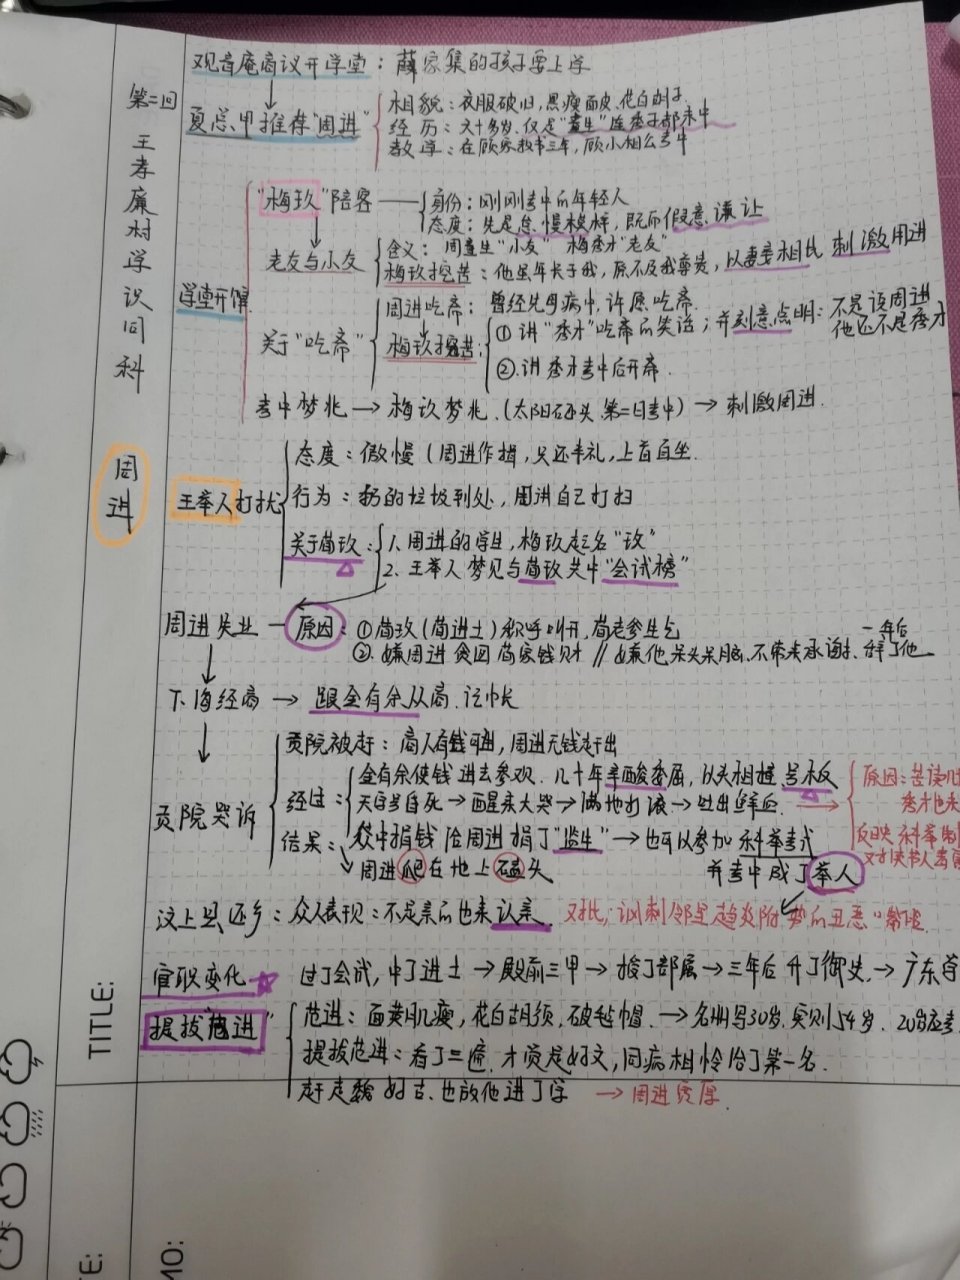 观音庵商议开学堂：薛家集的孩子要上学
第二回 王孝廉村学识同科
夏总甲推荐"周进"
相貌：衣服破旧，黑瘦面皮、花白胡子
经历：六十多岁，仅是"童生"连秀才都未中
教学：在顾家教书三年，顾小相公考中
学堂开馆
"梅玖"陪客
身份：刚刚考中的年轻人
态度：先是怠慢模样，既而假意谦让
老友与小友
含义：周童生"小友" 梅秀才"老友"
梅玖挖苦：他虽年长于我，原不及我尊贵，以妻妾相比 刺激周进
关于"吃斋"
周进吃斋：曾经先母病中，许愿吃斋
梅玖挖苦：
①讲"秀才"吃斋的笑话；并刻意点明：不是该周进
他还不是秀才
②讲秀才考中后开斋
考中梦兆→梅玖梦兆（太阳砸头 第二日考中）→刺激周进
周进
王举人打扰
态度：傲慢（周进作揖，只还半礼，上首自坐
行为：扔的垃圾到处，周进自己打扫
关于荀玖：
1. 周进的学生，梅玖起名"玫"
2. 王举人梦见与荀玖共中"会试榜"
周进失业—原因：①荀玖（荀进士）称呼叫开，荀老爹生气
②嫌周进贪图荀家钱财//嫌他呆头呆脑、不常来承谢、一年后辞了他
下海经商→跟金有余从商、记帐
贡院哭诉
贡院被赶：商人有钱可进，周进无钱赶出
经过：
金有余使钱进去参观，几十年辛酸委屈，以头相撞号板
天字号自死→醒来大哭→满地打滚→吐出鲜血→
原因：苦读几
秀才也未
反映科举制
结果：众中捐钱给周进捐了"监生"→也可以参加科举考试
对读书人
周进爬在地上磕头
并考中成了举人
汶上县还乡：众人表现：不是亲的也来认亲 对比，讽刺邻里趋炎附势的丑恶
官职变化☆ 过了会试，中了进士→殿前三甲→授了部属→三年后升了御史→广东
提拔"范进"
范进：面黄肌瘦，花白胡须，破毡帽→名册写30岁，实则54岁，20岁应考
提拔范进：看了三遍，才觉是好文，同病相怜给了第一名
赶走魏好古、也放他进了学 →周进宽厚
TITLE: